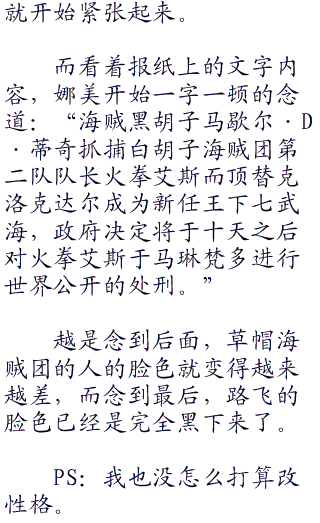 就开始紧张起来。
而看着报纸上的文字内
容，娜美开始一字一顿的念
道：“海贼黑胡子马歇尔·D
·蒂奇抓捕白胡子海贼团第
二队队长火拳艾斯而顶替克
洛克达尔成为新任王下七武
海，政府决定将于十天之后
对火拳艾斯于马琳梵多进行
世界公开的处刑。”
越是念到后面，草帽海
贼团的人的脸色就变得越来
越差，而念到最后，路飞的
脸色已经是完全黑下来了。
PS：我也没怎么打算改
性格。